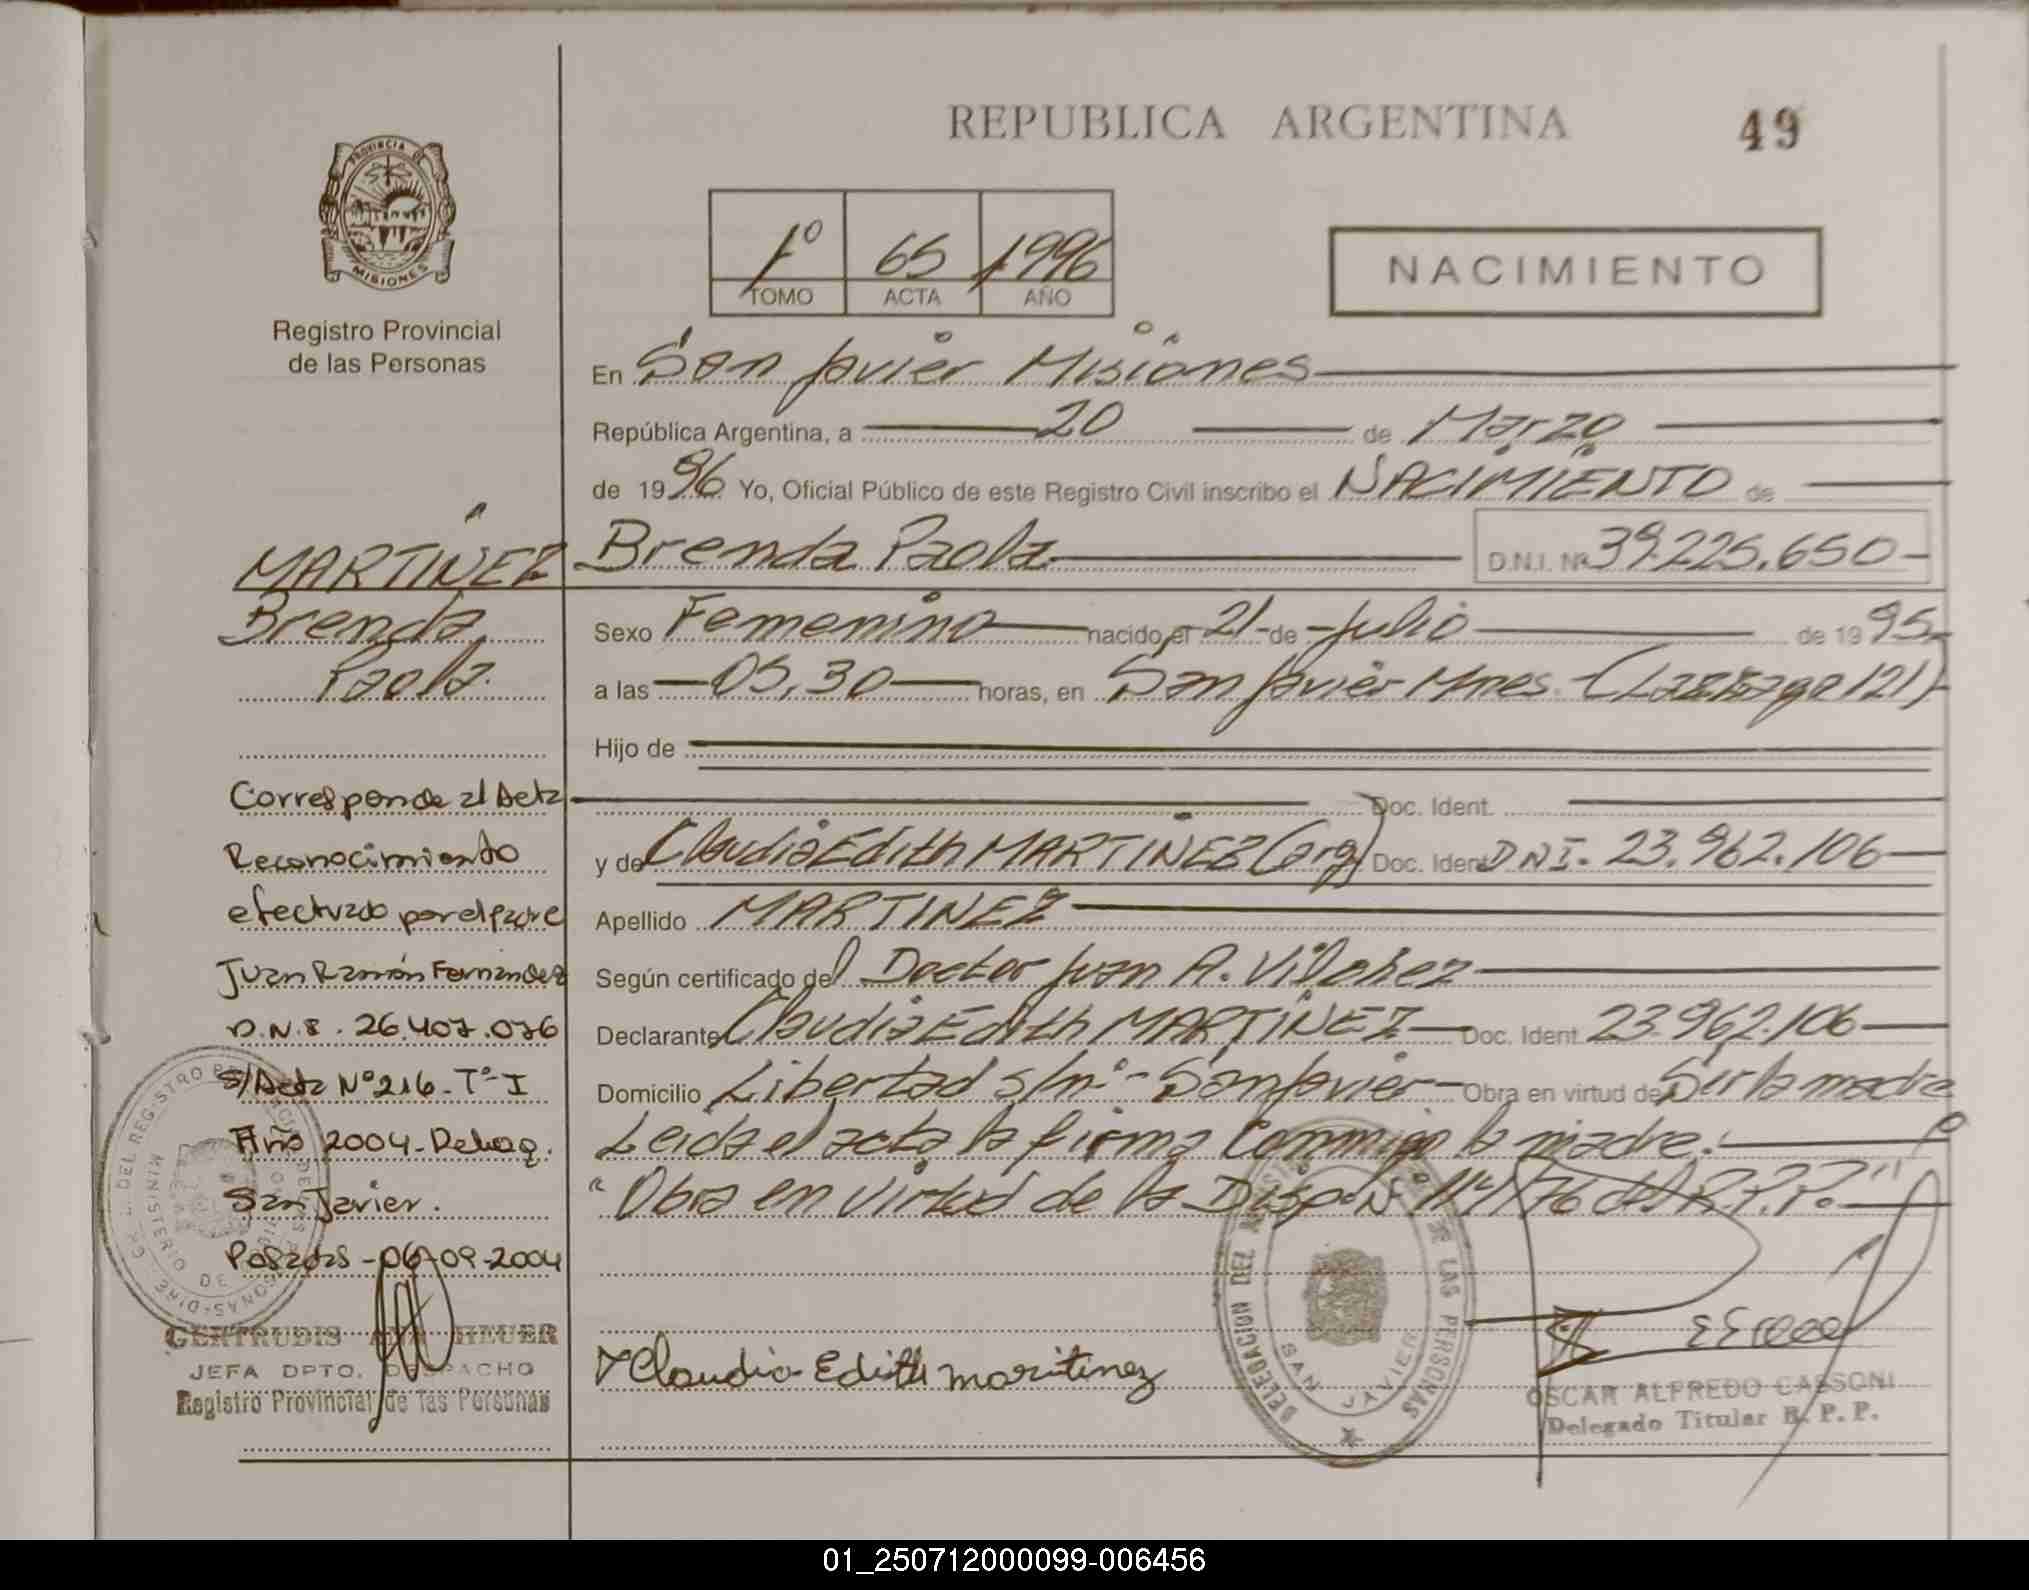 REPUBLICA ARGENTINA
49
PROVINCIA DE
MISIONES
Registro Provincial
de las Personas
1º 65 1996
TOMO ACTA AÑO
NACIMIENTO
En San Javier Misiones
República Argentina, a 20 de Marzo
de 1996 Yo, Oficial Público de este Registro Civil inscribo el NACIMIENTO de
Brenda Paola D.N.I. Nº 39.225.650
Sexo Femenino nacido el 21 de Julio de 1995
a las 05,30 horas, en San Javier Mnes. 121)
Hijo de
Doc. Ident.
y de Claudia Edith MARTINEZ (arg) Doc. Ident. DNI. 23.962.106
Apellido MARTINEZ
Según certificado del Doctor Juan A. Vilchez
Declarante Claudia Edith MARTINEZ Doc. Ident. 23.962.106
Domicilio Libertad s/nº - San Javier Obra en virtud de Ser la madre
Leida el acta la firma Conmigo la madre.
"Obra en virtud de la Disp. Nº 114/76 del R.P.P."
Claudia Edith martinez
DELEGACION DEL DE LAS PERSONAS
SAN JAVIER
OSCAR ALFREDO CASSONI
Delegado Titular R. P. P.
MARTINEZ
Brenda
Paola
Corresponde al Acta
Reconocimiento
efectuado por el padre
Juan Ramón Fernández
D.N.I. 26.407.076
S/Acta Nº 216 - Tº I
Año 2004 - Deleg.
San Javier.
Posadas - 06-09-2004
GERTRUDIS HEUER
JEFA DPTO. DESPACHO
Registro Provincial de las Personas
01_250712000099-006456